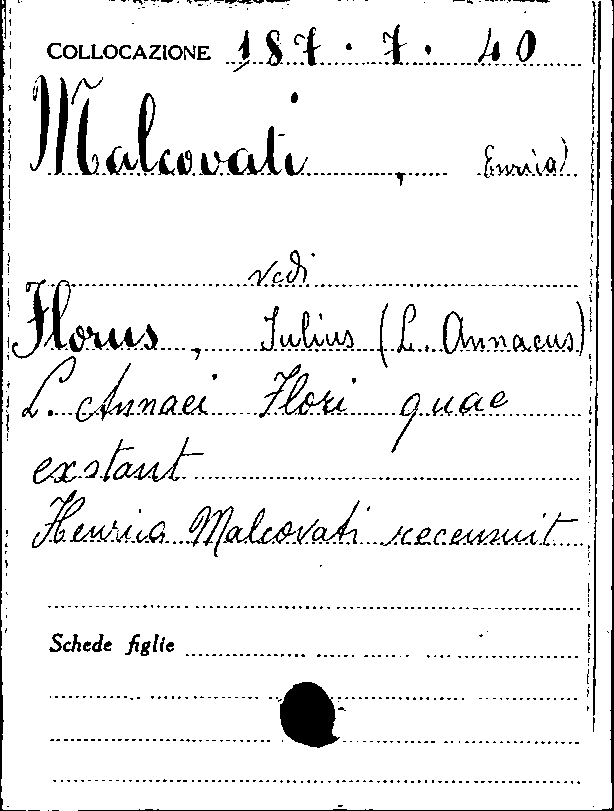 COLLOCAZIONE 187.7.40
Malcovati, Enrica
vedi
Florus, Iulius (L. Annaeus)
L. Annaei Flori quae
exstant
Henrica Malcovati recensuit
Schede figlie